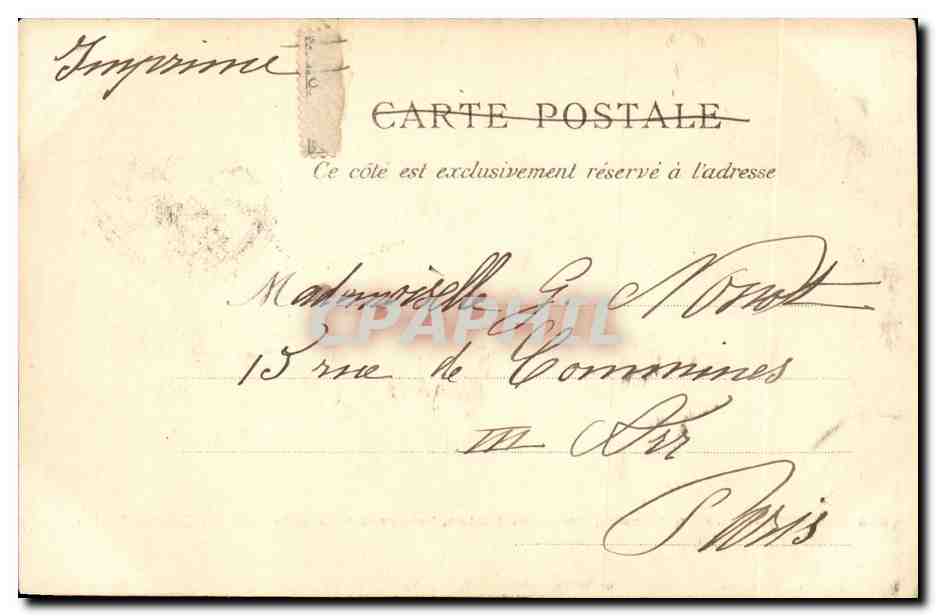 Imprimé
CARTE POSTALE
Ce côté est exclusivement réservé à l'adresse
CPAPHIL
Mademoiselle G Nonot
15 rue de Commines
III Arr
Paris